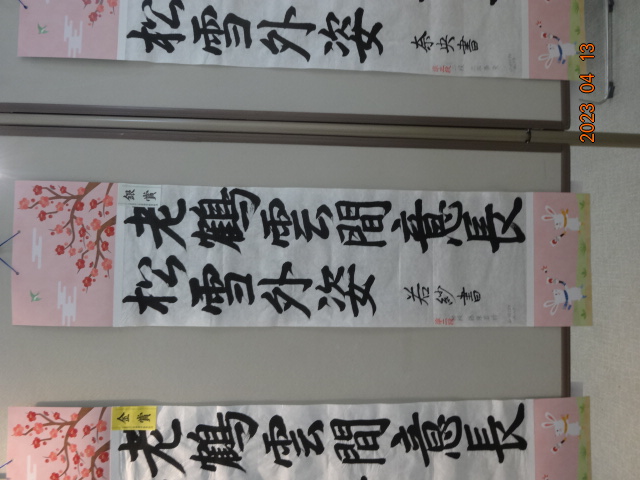 松雪外姿
奈央書
銀賞
老鶴雲間意長
松雪外姿
若紗書
金賞
老鶴雲間意長
2023 04 13